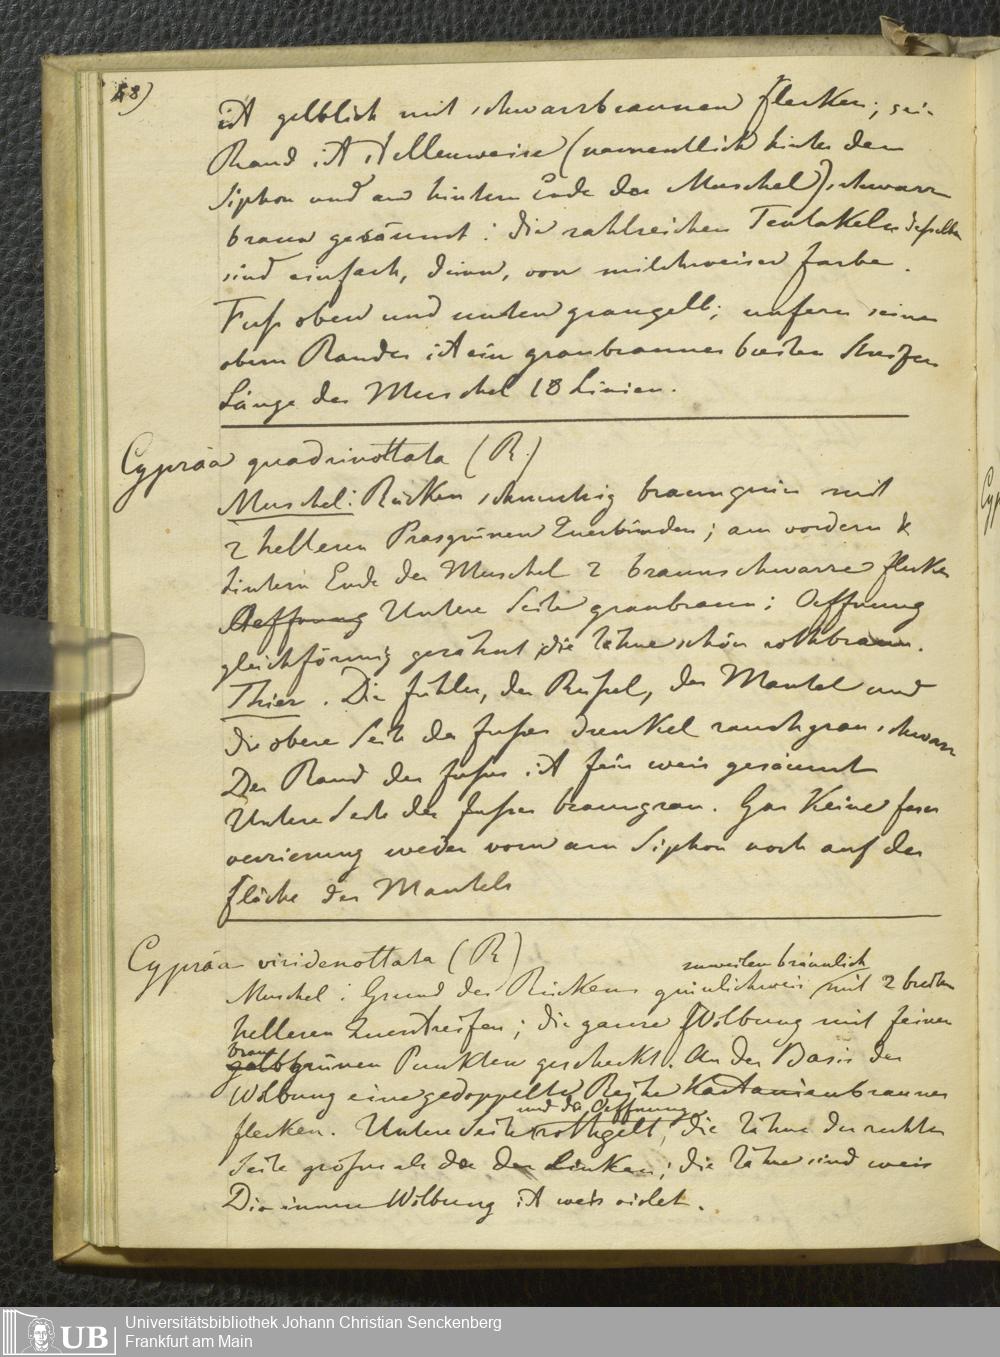 48)
ist gelblich mit schwarzbraunen Flecken; sei-
Rand ist stellenweise (namentlich hinter dem
Siphon und am hintern Ende der Muschel) schwarz
braun gesäumt: die zahlreichen Tentakeln desselben
sind einfach, dünn, von milchweiser Farbe.
Fuss oben und unten graugelb; unfern seines
obern Randes ist ein graubrauner breiter Streifen
Länge der Muschel 18 Linien.
Cypräa quadrinottata (R.)
Muschel: Rücken schmutzig braungrün mit
2 helleren Prasgrünen Querbänden; am vordern &
hintern Ende der Muschel 2 braunschwarze Flecken
Oeffnung Untere Seite graubraun; Oeffnung
gleichförmig gezähnt, die Zähne schön rothbraun.
Thier. Die Fühler, der Rüssel, der Mantel und
die obere Seite des Fusses dunkel rauchgrau schwarz
Der Rand des Fusses ist fein weis gesäumt
Untere Seite des Fusses braungrau. Gar keine Faser
verzierung weder vorn am Siphon noch auf der
Fläche des Mantels
Cypräa viridenottata (R)
zuweilen bräunlich
Muschel: Grund des Rückens grünlichweis mit 2 breiten
helleren Querstreifen; die ganze Wölbung mit feinen
braun
gelbgrünen Punkten gescheckt. An der Basis der
Wölbung eine gedoppelte Reihe Kastanienbrauner
und die Oeffnung
Flecken. Untere Seite rothgelb, die Zähne der rechten
Seite grösser als die der Linken; die Zähne sind weis
Die innere Wölbung ist weis violet.
UB
Universitätsbibliothek Johann Christian Senckenberg
Frankfurt am Main